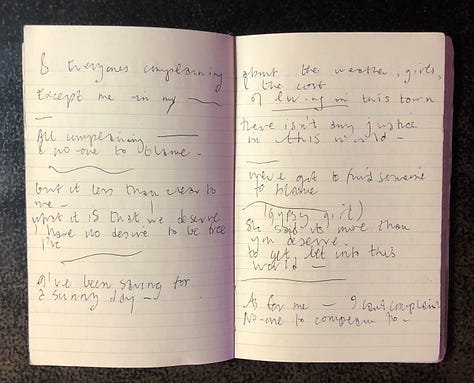 & Everyones complaining
Except me in my
All complaining
& no-one to blame -
but it less than clear to
me -
what it is that we deserve
I have no desire to be free
I've
I've been saving for
a sunny day -
about the weather, girls,
& the cost
of living in this town
there isn't any justice
in this world -
we've got to find someone
to blame
(gypsy girl)
She said its more than
you deserve
to get let into this
world -
As for me - I cant complain
No-one to complain to -